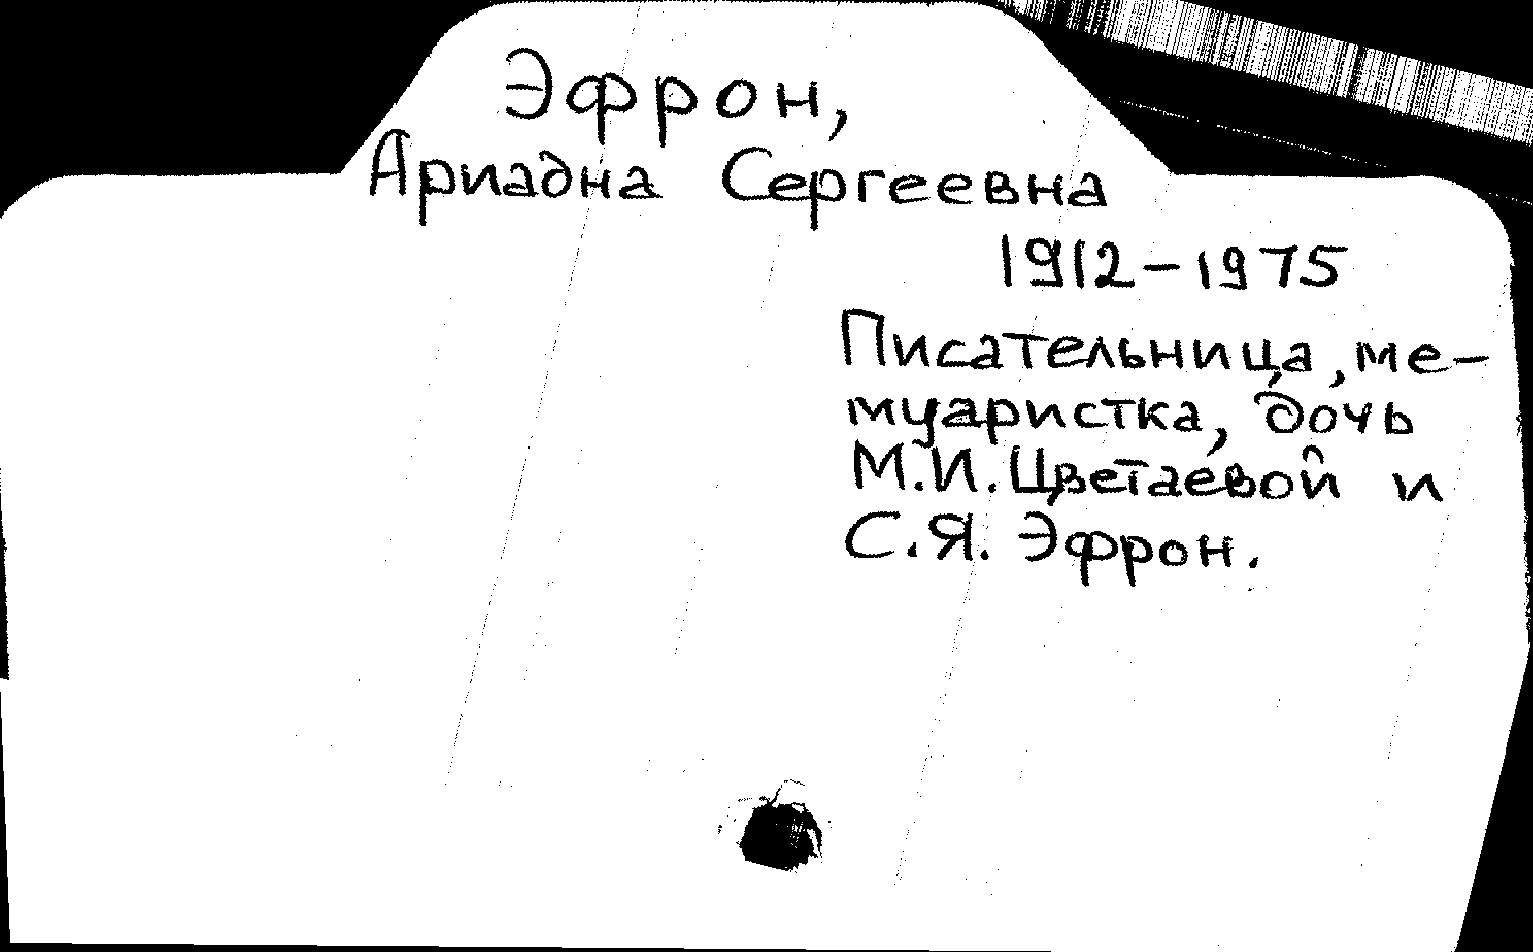 Эфрон,
Ариадна Сергеевна
1912-1975
Писательница, ме-
муаристка, дочь
М.И. Цветаевой и
С.Я. Эфрон.